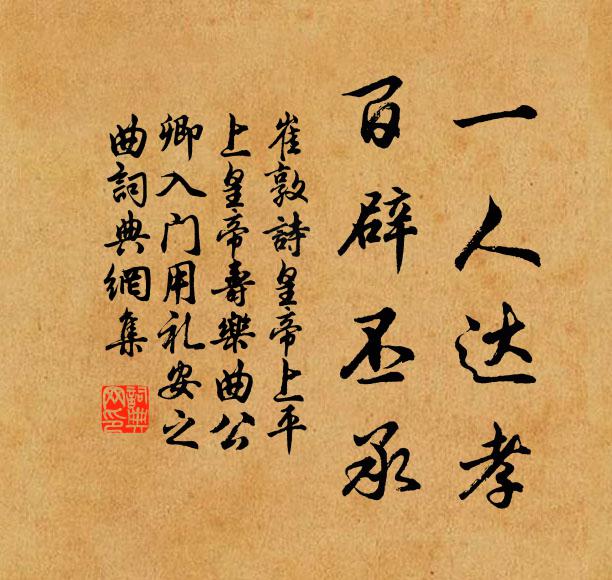 一人达孝
百辟丕承
崔敦詩皇帝上平
上皇帝壽樂曲公
卿入门用礼安之
曲詞典網集
詞典網印